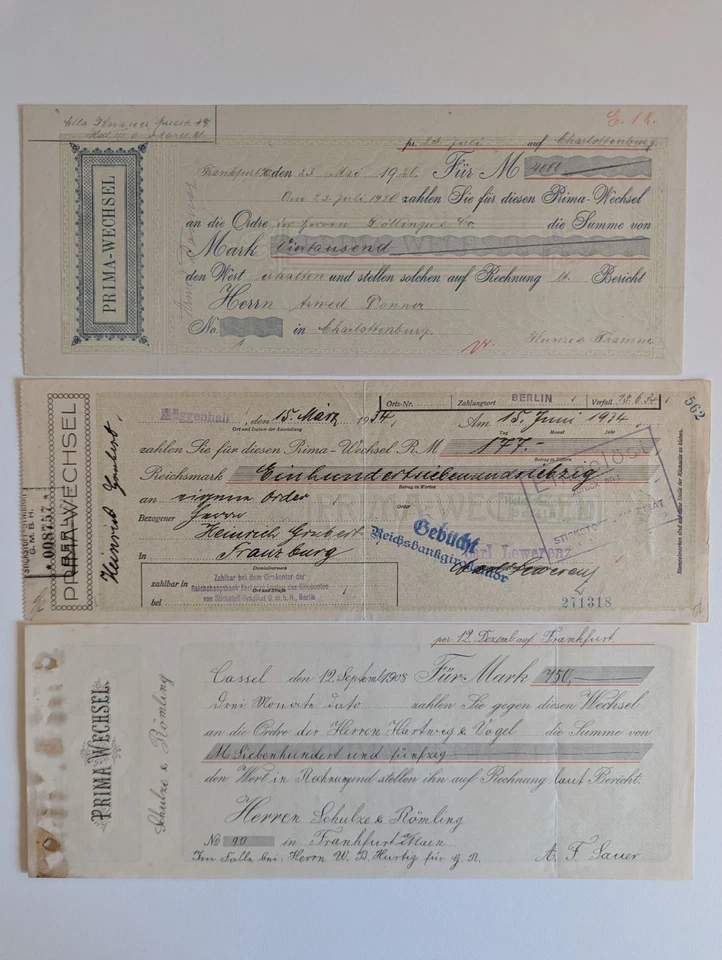 E. 18.
pr. 23. Juli auf Charlottenburg.
PRIMA-WECHSEL
Frankfurt den 23. Mai 1920. Für M 4000
Am 23. Juli 1920 zahlen Sie für diesen Prima-Wechsel
an die Ordre der Herren & Co die Summe von
Mark Viertausend
den Wert erhalten und stellen solchen auf Rechnung lt. Bericht
Herrn Arwed Donner
No. in Charlottenburg.
562
PRIMA-WECHSEL
G. M. B. H.
* 008757 *
Heinrich Grubert.
Orts-Nr. Zahlungsort BERLIN Verfall 15.6.34
, den 15. März 1934, Am 15. Juni 1934
Ort und Datum der Ausstellung Tag Monat Jahr
zahlen Sie für diesen Prima-Wechsel R.M 177.-
Betrag in Ziffern
Reichsmark Einhundertsiebenundsiebzig
Betrag in Worten
an eigene Order
Order
Bezogener Herrn
Heinrich Grubert
in Franzburg
Gebucht
Reichsbankgirokontor
Karl Lewerenz
zahlbar in
bei
Domizilvermerk
Ort und Straße
Zahlbar bei dem Girokontor der
von Stickstoff-Syndikat G.m.b.H., Berlin
271318
per 12. Dezemb. auf Frankfurt
PRIMA WECHSEL.
Schulze & Römling
Cassel den 12. Septemb. 1908 Für Mark 750,
Drei Monate dato zahlen Sie gegen diesen Wechsel
an die Ordre der Herren Hartwig & Vogel die Summe von
M Siebenhundert und fünfzig
den Wert in Rechnung und stellen ihn auf Rechnung laut Bericht.
Herren Schulze & Römling
No 90 in Frankfurt a/Main
Im Falle bei Herrn W. D. Hurtig für G. R. A. F. Sauer